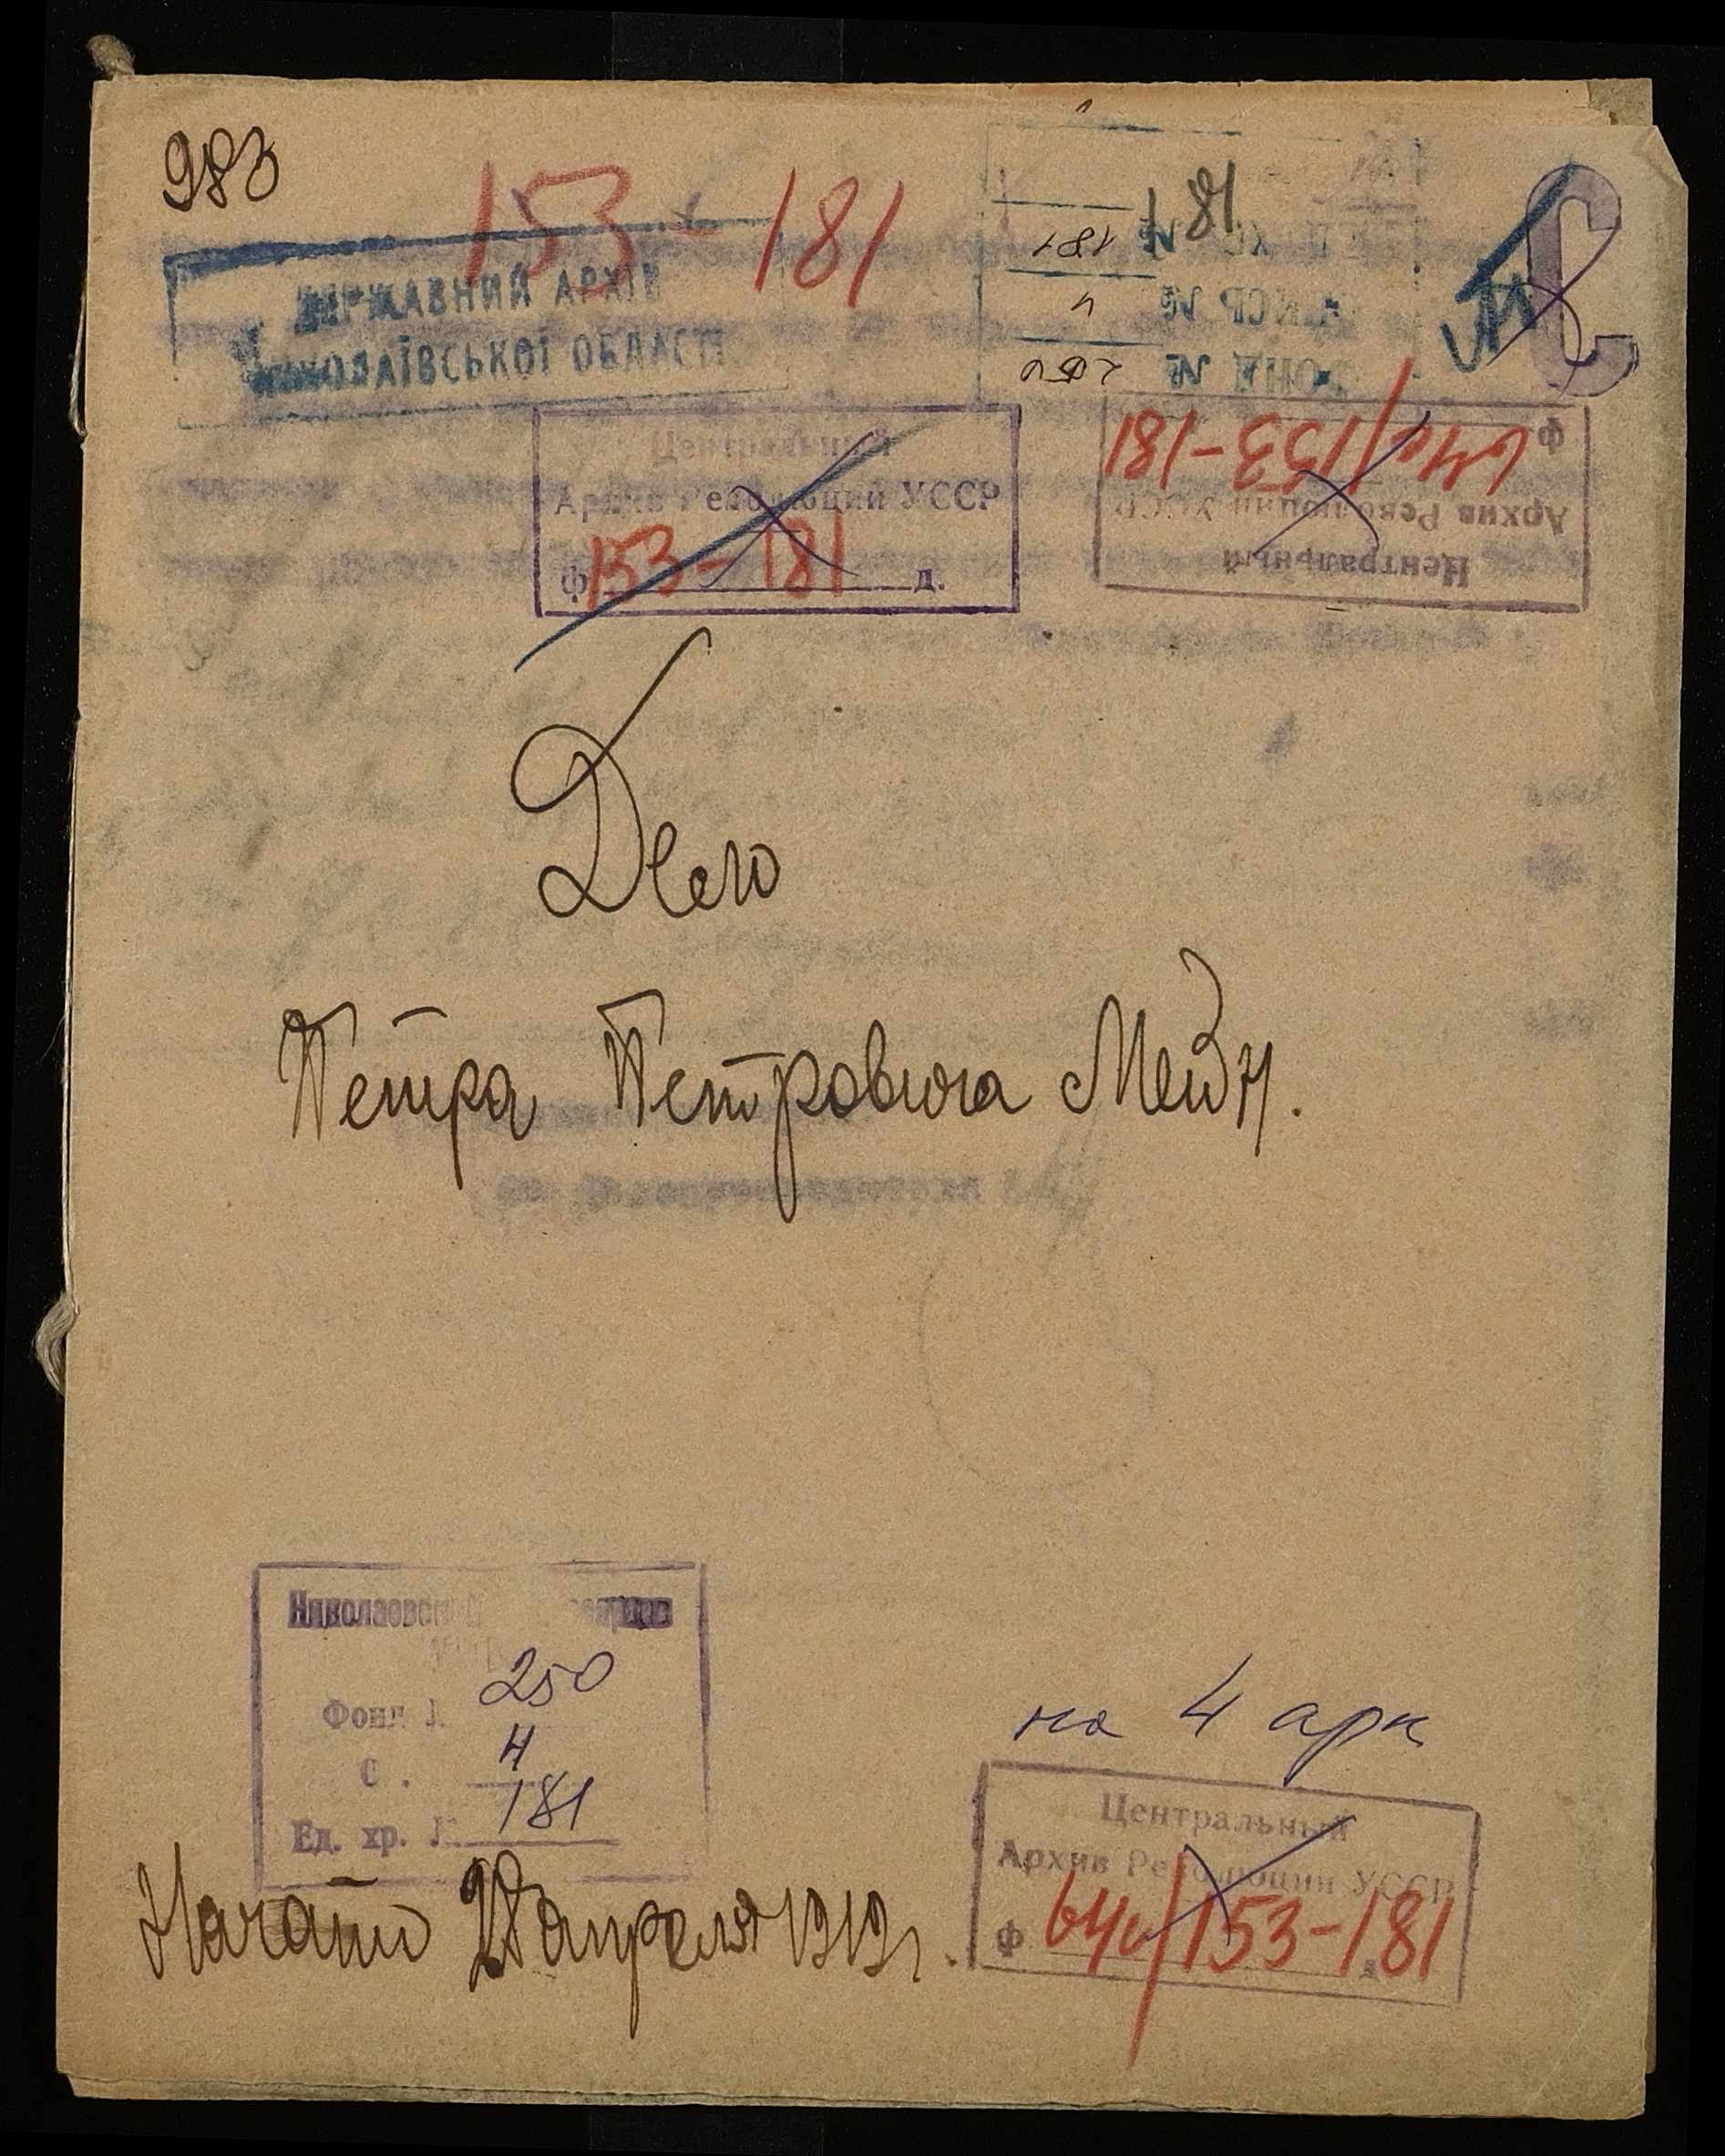 983
153-181
ДЕРЖАВНИЙ АРХІВ
МИКОЛАЇВСЬКОЇ ОБЛАСТІ
181
ФОНД № 250
ОПИСР № 4
181
Центральный
Архив Революции УССР
ф. 153-181 д.
Центральный
Архив Революции УССР
ф 64с/153-181
Дело
Петра Петровича Мейн.
Николаевский
Фонд 250
О. 4
Ед. хр. 181
на 4 арк
Центральный
Архив Революции УССР
Ф 64с/153-181
Начато апреля 1919 г.